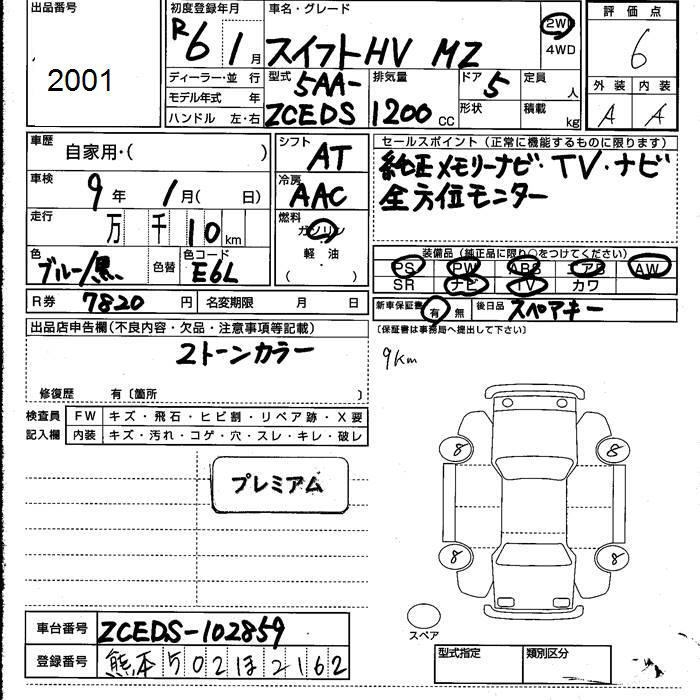 出品番号
2001
初度登録年月
R6 1月
車名・グレード
スイフトHV MZ
2WD
4WD
評価点
6
外装 内装
A A
ディーラー・並行
モデル年式 年
ハンドル 左・右
型式
5AA-
ZCEDS
排気量
1200cc
ドア 5
形状
定員
人
積載
kg
車歴
自家用・( )
シフト
AT
車検
9年 1月( 日)
冷房
AAC
走行
万 千 10km
燃料
ガソリン
軽・油
( )
色
ブルー/黒
色替
色コード
E6L
R券 7820円
名変期限 月 日
セールスポイント(正常に機能するものに限ります)
純正メモリーナビ・TV・ナビ
全方位モニター
装備品(純正品に限り○をつけてください)
PS PW ABS エアB AW
SR ナビ TV カワ
新車保証書 有 無
後日品 スペアキー
〔保証書は事務局へ提出して下さい〕
出品店申告欄(不良内容・欠品・注意事項等記載)
2トーンカラー
修復歴 有〔箇所 〕
検査員
記入欄
FW キズ・飛石・ヒビ割・リペア跡・X要
内装 キズ・汚れ・コゲ・穴・スレ・キレ・破レ
プレミアム
9km
8 8
8 8
スペア
車台番号 ZCEDS-102859
登録番号 熊本502ほ2162
型式指定
類別区分